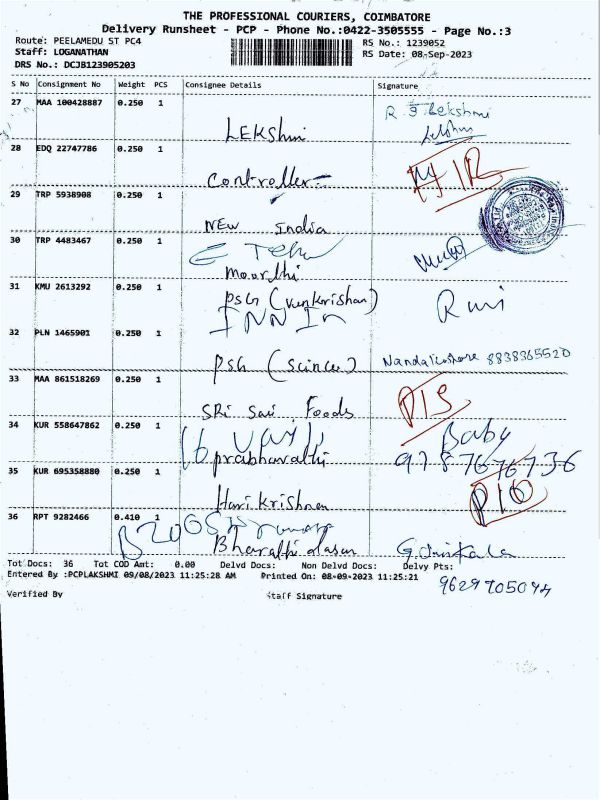 THE PROFESSIONAL COURIERS, COIMBATORE
Delivery Runsheet - PCP - Phone No.:0422-3505555 - Page No.:3
Route: PEELAMEDU ST PC4 RS No.: 1239052
Staff: LOGANATHAN RS Date: 08-Sep-2023
DRS No.: DCJB123905203
S No Consignment No Weight PCS Consignee Details Signature
27 MAA 100428887 0.250 1 R J Lekshmi
LEKShmi
28 EDQ 22747786 0.250 1
Controller
29 TRP 5938908 0.250 1
NEW India
30 TRP 4483467 0.250 1
Moorthi
31 KMU 2613292 0.250 1
PSG (Vunkrishan)
32 PLN 1465901 0.250 1
PSG (Scince) Nandakishore 8838365520
33 MAA 861518269 0.250 1
SRi Sai Foods
34 KUR 558647862 0.250 1 Baby
prabhavathi 9787676736
35 KUR 695358880 0.250 1
Hari Krishnan
36 RPT 9282466 0.410 1
Bharathi dasan
Tot Docs: 36 Tot COD Amt: 0.00 Delvd Docs: Non Delvd Docs: Delvy Pts:
Entered By :PCPLAKSHMI 09/08/2023 11:25:28 AM Printed On: 08-09-2023 11:25:21
9629705094
Verified By Staff Signature